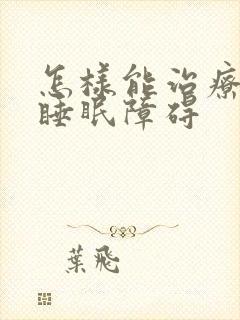 怎樣能治療
睡眠障碍
葉飛